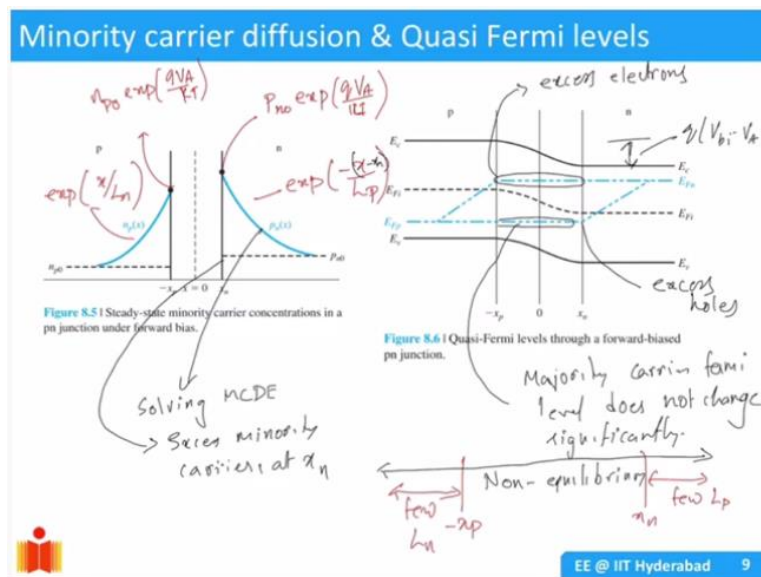 Minority carrier diffusion & Quasi Fermi levels
n_p0 exp(qVA/KT)
P_no exp(qVA/KT)
exp(x/Ln)
exp(-(x-xn)/Lp)
p
n
n_p(x)
p_n(x)
n_p0
p_n0
−x_p x = 0 x_n
Figure 8.5 | Steady-state minority carrier concentrations in a
pn junction under forward bias.
Solving MCDE
Exces minority
carriers at x_n
excess electrons
p
n
q(Vbi - VA
E_c
E_c
E_Fn
E_Fi
E_Fi
E_Fp
E_v
E_v
excess
holes
−x_p 0 x_n
Figure 8.6 | Quasi-Fermi levels through a forward-biased
pn junction.
Majority carrier fermi
level does not change
significantly.
Non-equilibrium
few
Ln
-xp
xn
few Lp
EE @ IIT Hyderabad 9